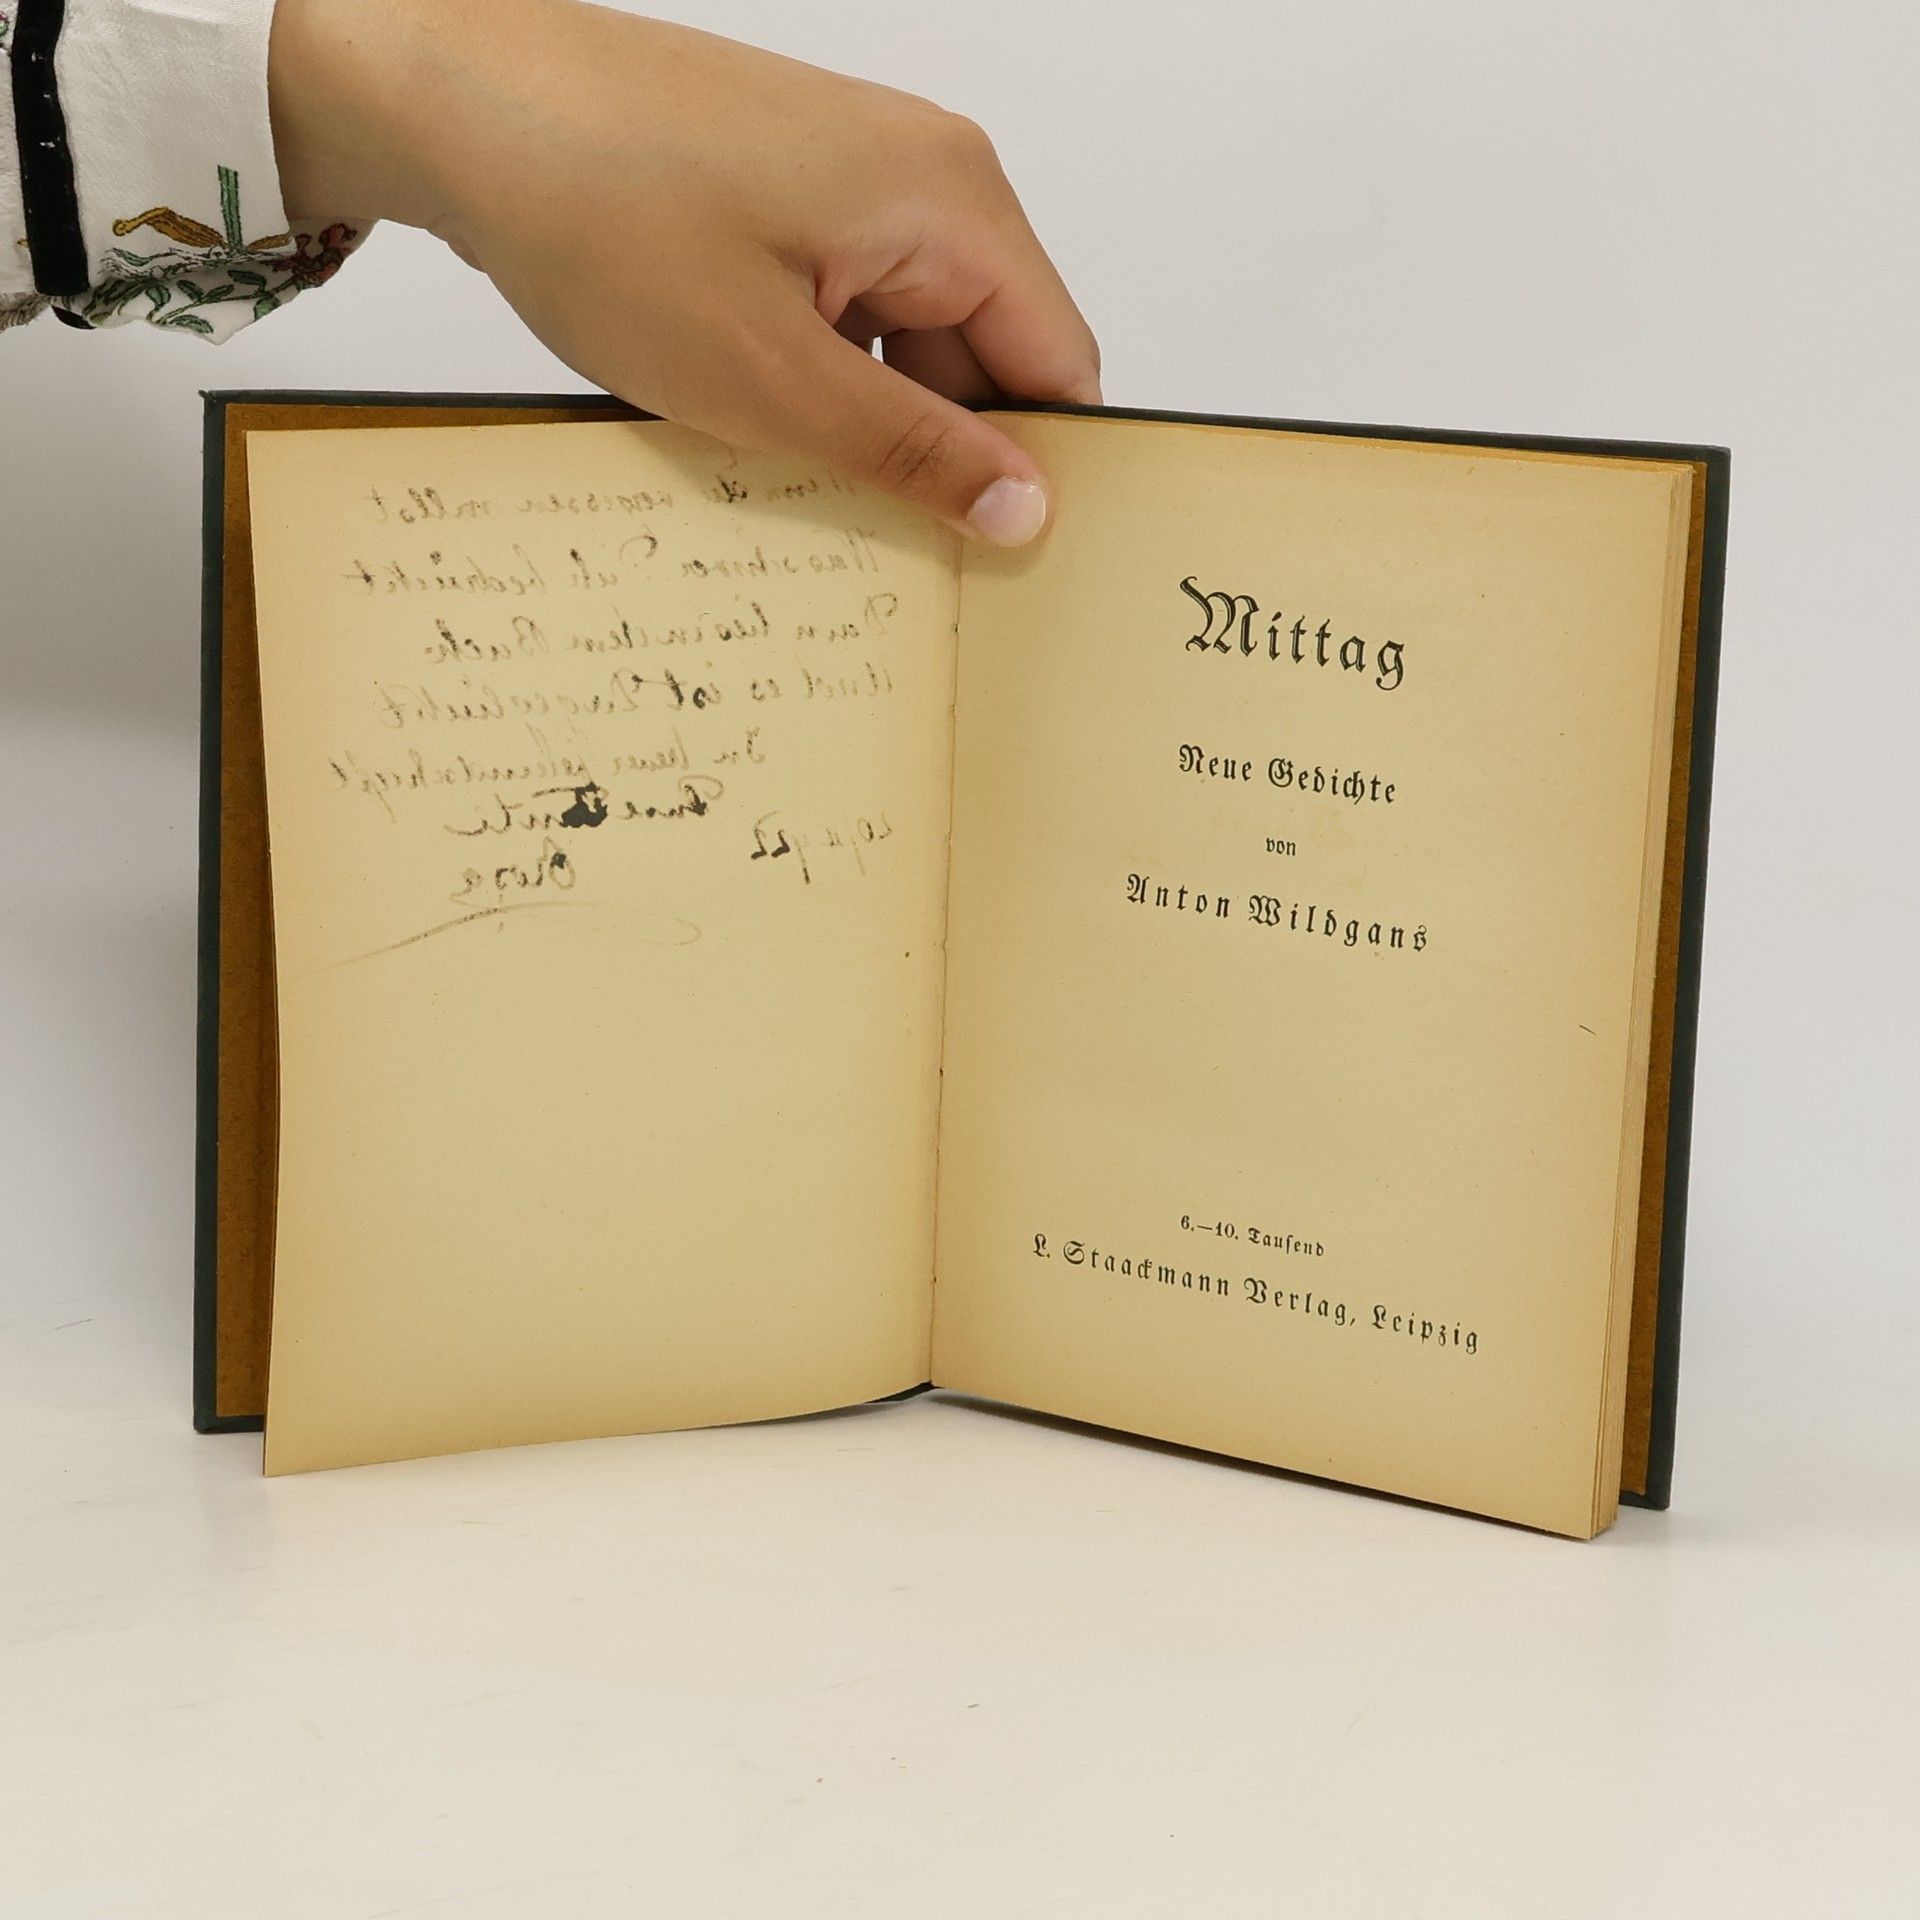 Wenn du vergessen willst
Was schwer Dich bedrückt
Dann lies in dem Buch
Und es ist Dir geglückt
In treuer
Rosa
Mittag
Neue Gedichte
von
Anton Wildgans
6.—10. Tauſend
L. Staackmann Verlag, Leipzig